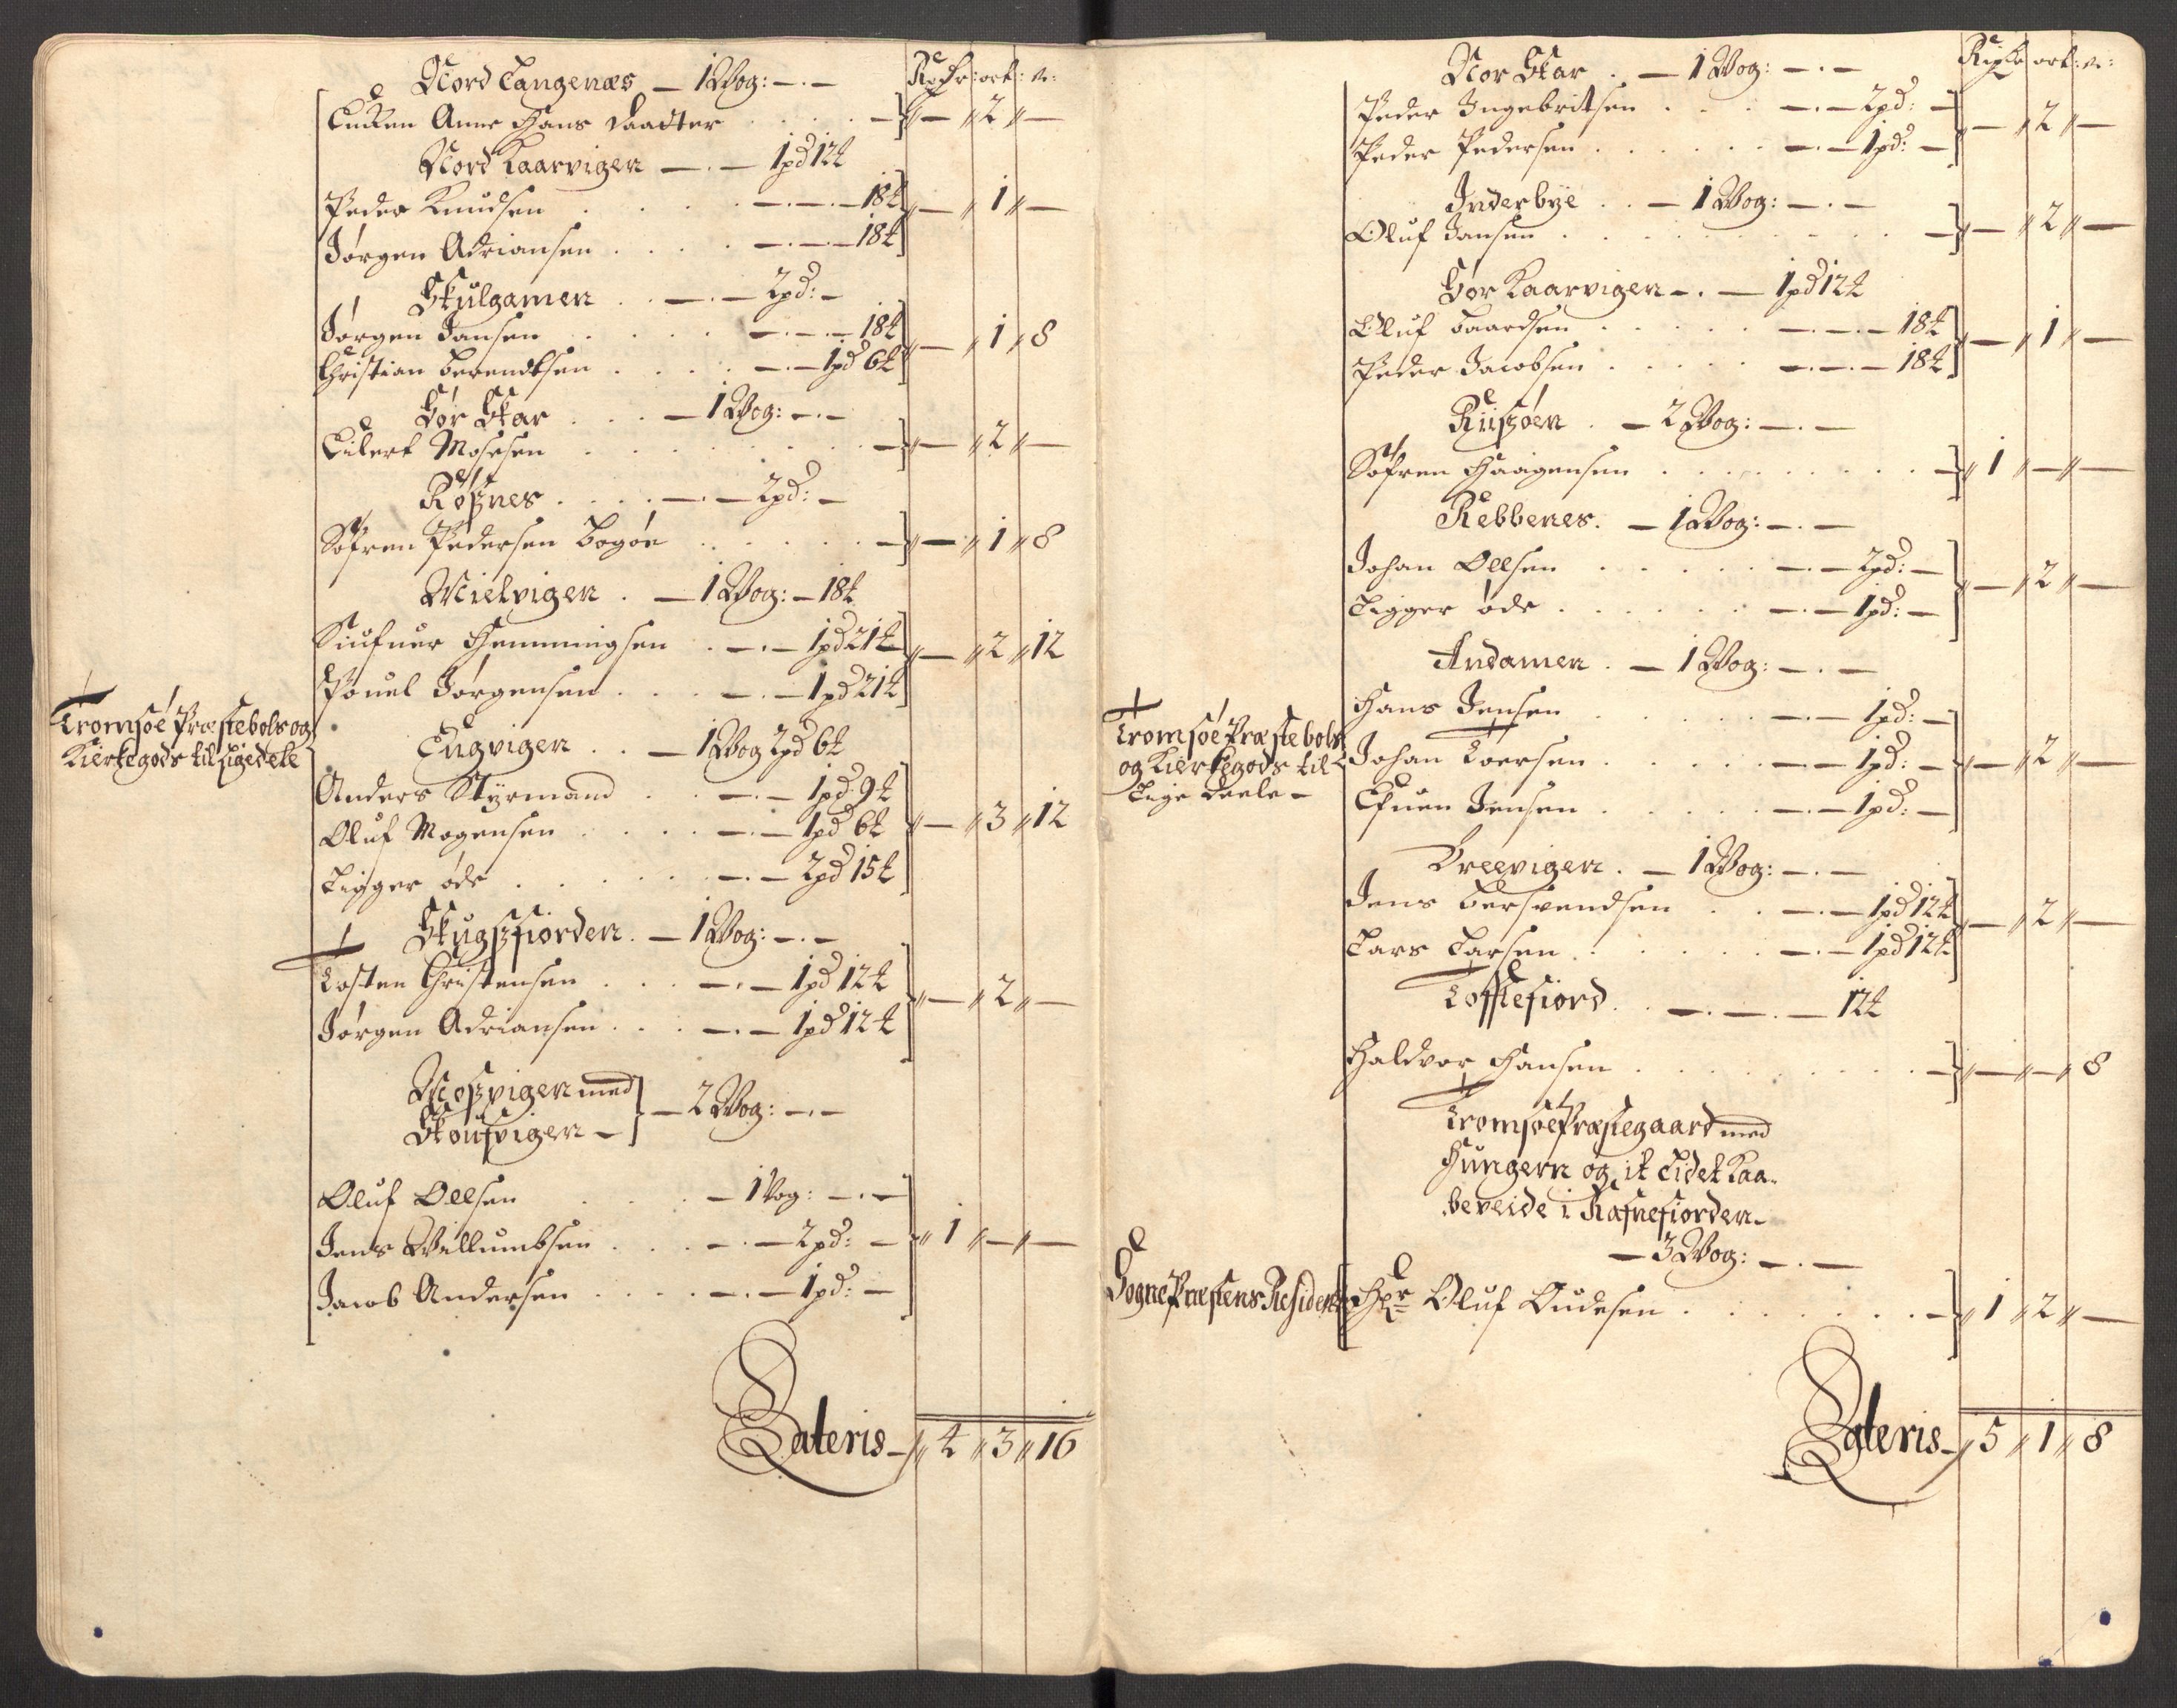 Nord Langenæs — 1 Wog: — . — Rixdr: ort: s:
Enken Anne Hans daatter . . . . — " — " 2 " —
Nord Kaarvigen — . — 1 pd 12 ℔
Peder Knudsen . . . . — . — . — 18 ℔ " — " 1 " —
Jørgen Adriansen . . . — . — . — 18 ℔
Skulgamen . . — . — 2 pd: —
Jørgen Jansen . . . . — . — . — 18 ℔ " — " 1 " 8
Christian Berendtsen . . . . — . — 1 pd 6 ℔
Sør Skar . . . — 1 Wog: — . —
Eilert Mosesen . . . . . . — " — " 2 " —
Røßnes . . . . — . — 2 pd: —
Søfren Pedersen Bogøe . . . . . — " — " 1 " 8
Mielvigen . — 1 Wog: — 18 ℔
Hemmingsen . — . — 1 pd 21 ℔ " — " 2 " 12
Pouel Jørgensen . . . — . — 1 pd 21 ℔
Tromsøe Præstebols og
Kierkegods til Ligedele
Engvigen . . — 1 Wog 2 pd 6 ℔
Anders Styrmand . . — . — 1 pd 9 ℔
Oluf Mogensen . . . . — . — 1 pd 6 ℔ " — " 3 " 12
Ligger øde . . . . . — . — 2 pd 15 ℔
Skugßfiorden . — 1 Wog: — . —
Tosten Christensen . . . — . — 1 pd 12 ℔ " — " 2 " —
Jørgen Adriansen . . . — . — 1 pd 12 ℔
Moßvigen med
Skoufvigen — } — 2 Wog: — . —
Oluf Ollsen . . . — 1 Vog: — . —
Jens Willumbsen . . . — . — 2 pd: — " 1 " — " —
Jacob Andersen . . . . — . — 1 pd: —
Lateris — " 4 " 3 " 16
Nor Skar . — 1 Wog: — . — Rixdr ort: s:
Peder Ingebritsen . . . — . — 2 pd: — " — " 2 " —
Peder Pedersen . . . . . — . — 1 pd: —
Inderbye . . — 1 Wog: — . —
Oluf Jansen . . . . . . . . — " — " 2 " —
Sør Kaarvigen — . — 1 pd 12 ℔
Oluf Baardsen . . . . . — . — . — 18 ℔ " — " 1 " —
Peder Jacobsen . . . . . — . — . — 18 ℔
Riißøen . — 2 Wog: — . —
Søfren Haagensen . . . . . . . — " 1 " — " —
Rebbenes . — 1 Wog: — . —
Johan Ollsen . . . . . — . — 2 pd: — " — " 2 " —
Ligger øde . . . . . — . — 1 pd: —
Andamen . — 1 Wog: — . —
Hans Jensen . . . . . — . — 1 pd: —
Tromsøe Præstebols
og Kierkegods til
Lige Deele —
Johan Toersen . . . . — . — 1 pd: — " — " 2 " —
Jensen . . . . . — . — 1 pd: —
Dreevigen . — 1 Wog: — . —
Jens Bersvendsen . . — . — 1 pd 12 ℔ " — " 2 " —
Lars Larsen . . . . . — . — 1 pd 12 ℔
Toftefiord . . — . — . — 12 ℔
Haldvor Hansen . . . . . . . — " — " — " 8
Tromsøe Præstegaard med
Hungern og it Lidet Kaa-
beveide i Rafnefiorden —
— 3 Wog: — . —
Sogne Præstens Residentz Hr Oluf Oudesen . . . . . — " 1 " 2 " —
Lateris — " 5 " 1 " 8